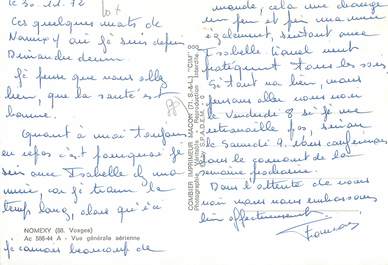 le 30.11.72
Ces quelques mots de
Nomexy où je suis depuis
Dimanche dernier
Je pense que vous allez
bien, que la santé est
bonne.
Quant à moi toujours
en repos c'est pourquoi je
suis avec Isabelle et ma
mère, car je trouve le
temps long, alors qu'ici
NOMEXY (88. Vosges)
Ac 588-44 A - Vue générale aérienne
je connais beaucoup de
COMBIER IMPRIMEUR MACON (71. S.-&-L.) "CIM"
Photographie véritable - Reproduction interdite
S.P.A.D.E.M.
monde, cela me change
un peu et puis ma mère
également, surtout avec
Isabelle
pratiquement tous les soirs
Si tout va bien, nous
pensons aller vous voir
le Vendredi 8 si je ne
pas, sinon
le Samedi 9. Vous
dans le courant de la
semaine prochaine.
Dans l'attente de vous
voir nous vous embrassons
bien affectueusement.